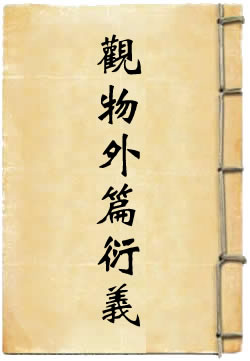 觀物外篇衍義